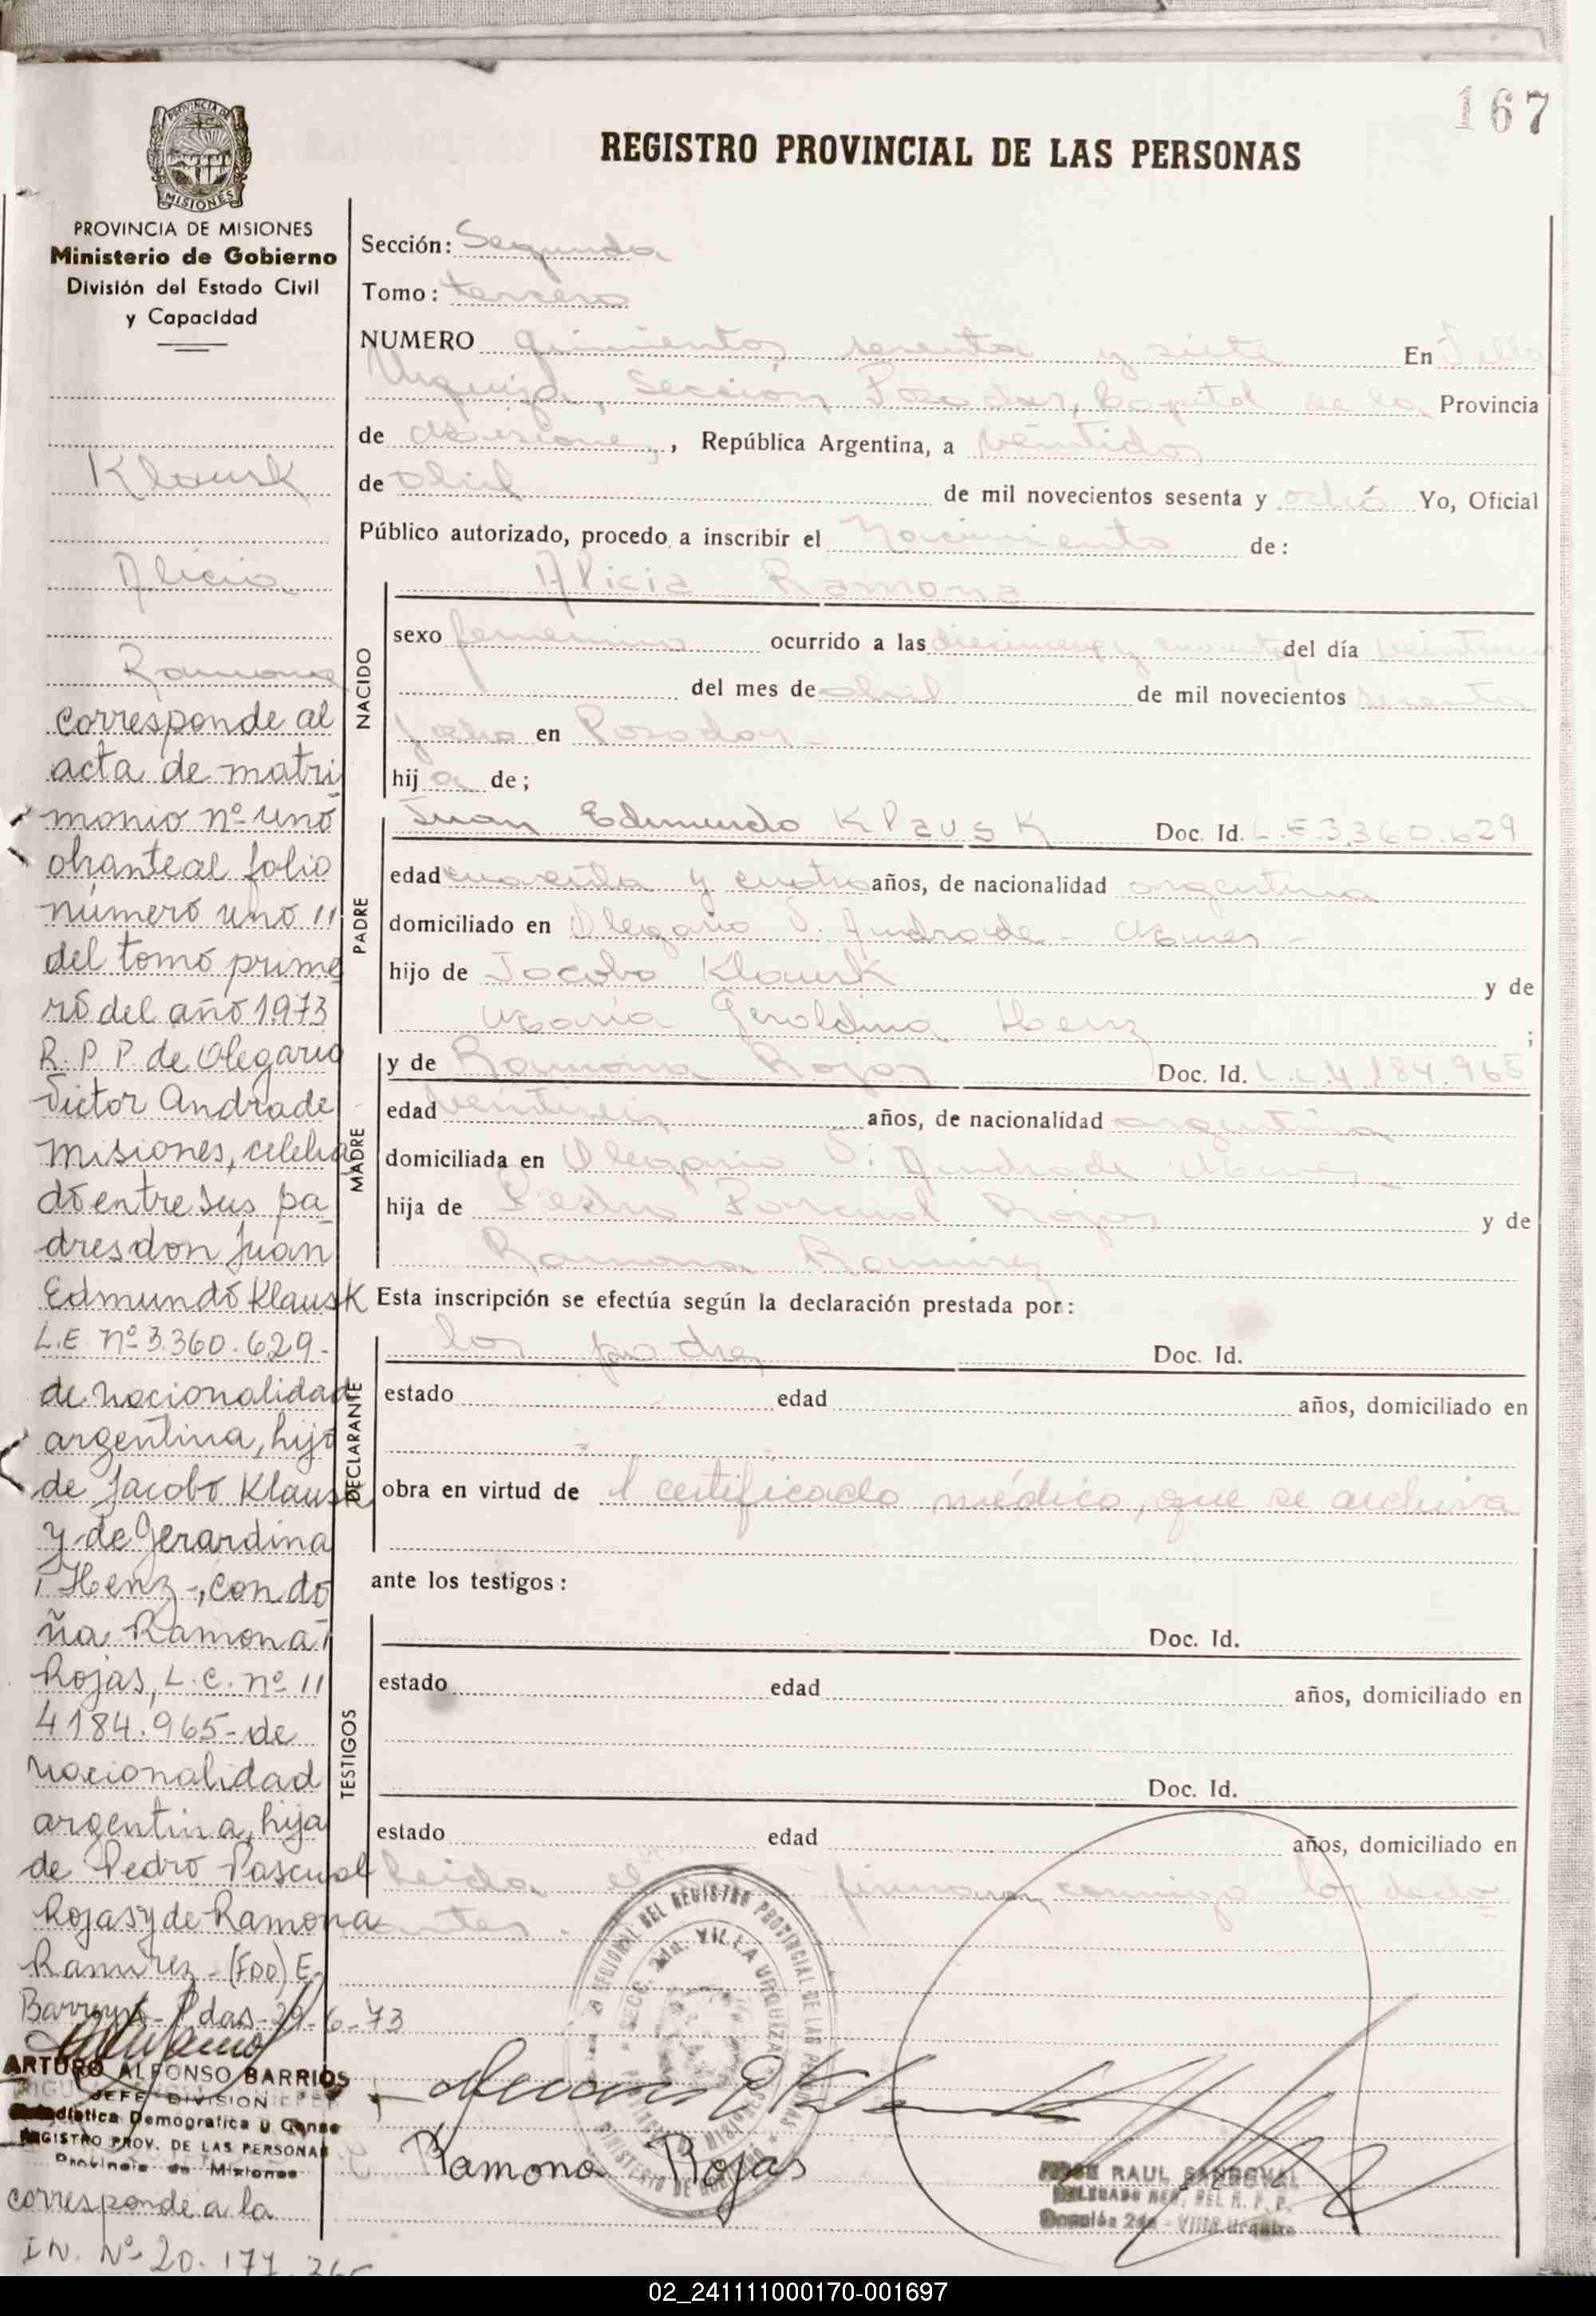 167
REGISTRO PROVINCIAL DE LAS PERSONAS
PROVINCIA DE MISIONES
Ministerio de Gobierno
División del Estado Civil
y Capacidad
Klausk
Alicia
Ramona
corresponde al
acta de matri
monio nº uno
obrante al folio
número uno
del tomo prime
ro del año 1973
R. P. P. de Olegario
Victor Andrade
Misiones, celebra
do entre sus pa
dres don Juan
Edmundo Klausk
L.E. Nº 3.360.629-
de nacionalidad
argentina, hijo
de Jacobo Klausk
y de Gerardina
Henz-, con do
ña Ramona
Rojas, L.C. nº
4184.965- de
nacionalidad
argentina, hija
de Pedro Pascual
Rojas y de Ramona
Ramirez - (FDO) E.
Pdas-29-6-73
ARTURO ALFONSO BARRIOS
JEFE DIVISION
Estadistica Demografica y Censo
REGISTRO PROV. DE LAS PERSONAS
Provincia de Misiones
corresponde a la
Sección: Segunda
Tomo: tercero
NUMERO quinientos sesenta y siete En Villa
Urquiza, Sección Posadas, Capital de la Provincia
de Misiones, República Argentina, a veintidos
de abril de mil novecientos sesenta y ocho Yo, Oficial
Público autorizado, procedo a inscribir el nacimiento de:
NACIDO
Alicia Ramona
sexo femenino ocurrido a las diecinueve y cuarenta del día
del mes de abril de mil novecientos sesenta
y ocho en Posadas
hija de;
PADRE
Juan Edmundo Klausk Doc. Id. L.E 3.360.629
edad cuarenta y cuatro años, de nacionalidad argentina
domiciliado en Olegario V. Andrade - Mnes -
hijo de Jacobo Klausk y de
María Geraldina Henz ;
MADRE
y de Ramona Rojas Doc. Id. L.C.4.184.965
edad veintiseis años, de nacionalidad argentina
domiciliada en Olegario V. Andrade Mnes -
hija de Pedro Pascual Rojas y de
Ramona Ramirez
Esta inscripción se efectúa según la declaración prestada por:
DECLARANTE
los padres Doc. Id.
estado edad años, domiciliado en
obra en virtud de l certificado médico, que se archiva
ante los testigos:
TESTIGOS
Doc. Id.
estado edad años, domiciliado en
Doc. Id.
estado edad años, domiciliado en
Leida el firman conmigo los decla
rantes.
REGIONAL DEL REGISTRO PROVINCIAL DE LAS PERSONAS
SECC. 2da. VILLA URQUIZA
MINISTERIO DE GOBIERNO
Ramona Rojas
RAUL SANDOVAL
DELEGADO REG. DEL R. P. P.
Sección 2da - Villa Urquiza
02_241111000170-001697